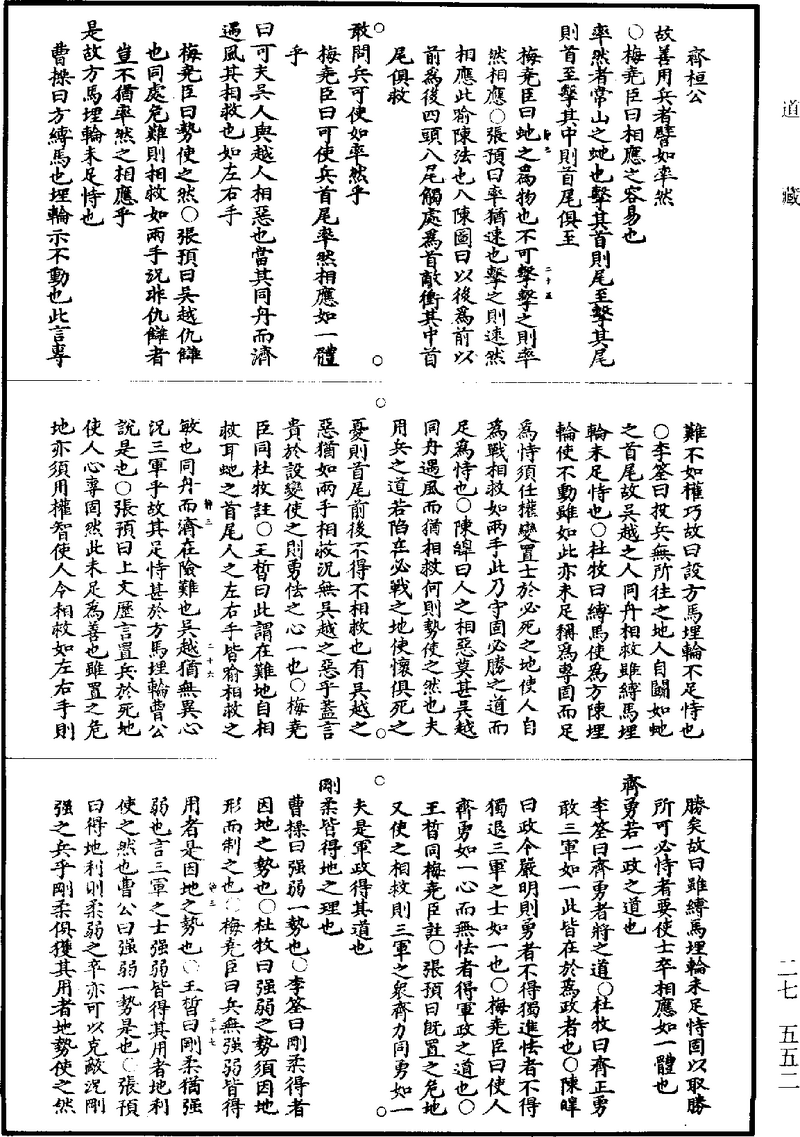 道藏
齊桓公
故善用兵者譬如率然
○梅堯臣曰相應之容易也
率然者常山之虵也擊其首則尾至擊其尾
則首至擊其中則首尾俱至
梅堯臣曰虵之爲物也不可擊擊之則率
然相應○張預曰率猶速也擊之則速然
相應此喻陳法也八陳圖曰以後爲前以
前爲後四頭八尾觸處爲首敵衝其中首
尾俱救
敢問兵可使如率然乎
梅堯臣曰可使兵首尾率然相應如一體
乎
曰可夫吳人與越人相惡也當其同舟而濟
遇風其相救也如左右手
梅堯臣曰勢使之然○張預曰吳越仇讎
也同處危難則相救如兩手況非仇讎者
豈不猶率然之相應乎
是故方馬埋輪未足恃也
曹操曰方縛馬也埋輪示不動也此言專
難不如權巧故曰設方馬埋輪不足恃也
○李筌曰投兵無所往之地人自鬭如虵
之首尾故吳越之人同舟相救雖縛馬埋
輪未足恃也○杜牧曰縛馬使爲方陳埋
輪使不動雖如此亦未足稱爲專固而足
爲恃須任權變置士於必死之地使人自
爲戰相救如兩手此乃守固必勝之道而
足爲恃也○陳皥曰人之相惡莫甚吳越
同舟遇風而猶相救何則勢使之然也夫
用兵之道若陷在必戰之地使懷俱死之
憂則首尾前後不得不相救也有吳越之
惡猶如兩手相救況無吳越之惡乎蓋言
貴於設變使之則勇怯之心一也○梅堯
臣同杜牧註○王晳曰此謂在難地自相
救耳虵之首尾人之左右手皆喻相救之
敏也同舟而濟在險難也吳越猶無異心
況三軍乎故其足恃甚於方馬埋輪曹公
說是也○張預曰上文歷言置兵於死地
使人心專固然此未足爲善也雖置之危
地亦須用權智使人令相救如左右手則
勝矣故曰雖縛馬埋輪未足恃固以取勝
所可必恃者要使士卒相應如一體也
齊勇若一政之道也
李筌曰齊勇者將之道○杜牧曰齊正勇
敢三軍如一此皆在於爲政者也○陳皥
曰政令嚴明則勇者不得獨進怯者不得
獨退三軍之士如一也○梅堯臣曰使人
齊勇如一心而無怯者得軍政之道也○
王晳同梅堯臣註○張預曰旣置之危地
又使之相救則三軍之衆齊力同勇如一
夫是軍政得其道也
剛柔皆得地之理也
曹操曰强弱一勢也○李筌曰剛柔得者
因地之勢也○杜牧曰强弱之勢須因地
形而制之也○梅堯臣曰兵無强弱皆得
用者是因地之勢也○王晳曰剛柔猶强
弱也言三軍之士强弱皆得其用者地利
使之然也曹公曰强弱一勢是也○張預
曰得地利則柔弱之卒亦可以克敵況剛
强之兵乎剛柔俱獲其用者地勢使之然
二十五
二十六
二十七
二七 五五二